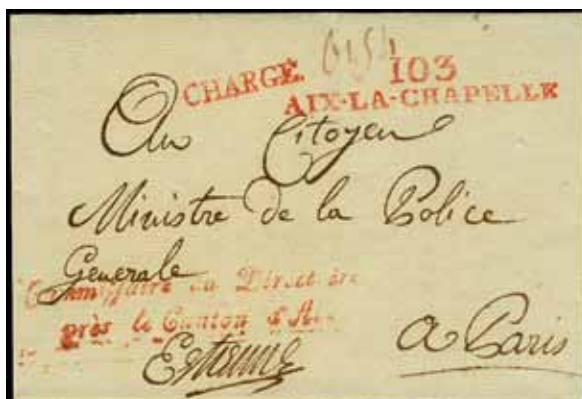 CHARGE. 103
AIX-LA-CHAPELLE
Au Citoyen
Ministre de la Police
Generale
Commissaire du Direct
près le Canton d'A
a Paris